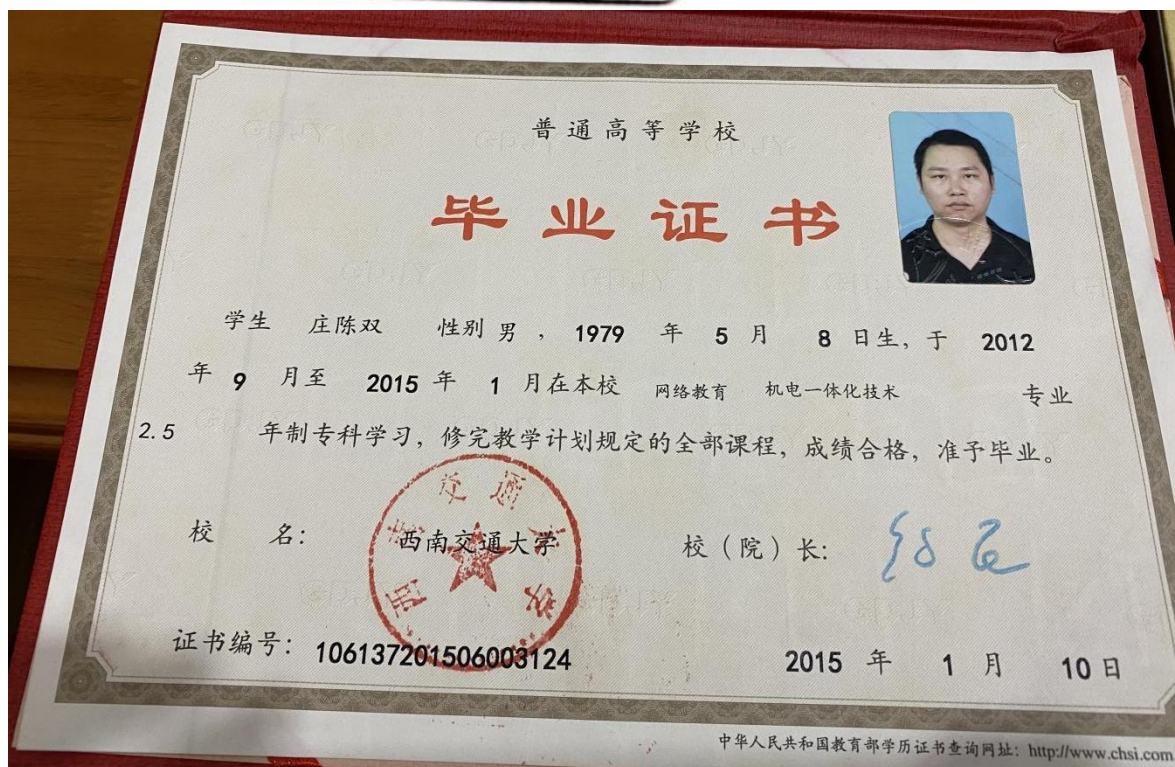 普通高等学校
毕业证书
学生 庄陈双 性别 男 , 1979 年 5 月 8 日生, 于 2012
年 9 月至 2015 年 1 月在本校 网络教育 机电一体化技术 专业
2.5 年制专科学习, 修完教学计划规定的全部课程, 成绩合格, 准予毕业。
校 名: 西南交通大学 校 (院) 长:
西南交通大学
证书编号: 106137201506003124 2015 年 1 月 10 日
中华人民共和国教育部学历证书查询网址: http://www.chsi.com